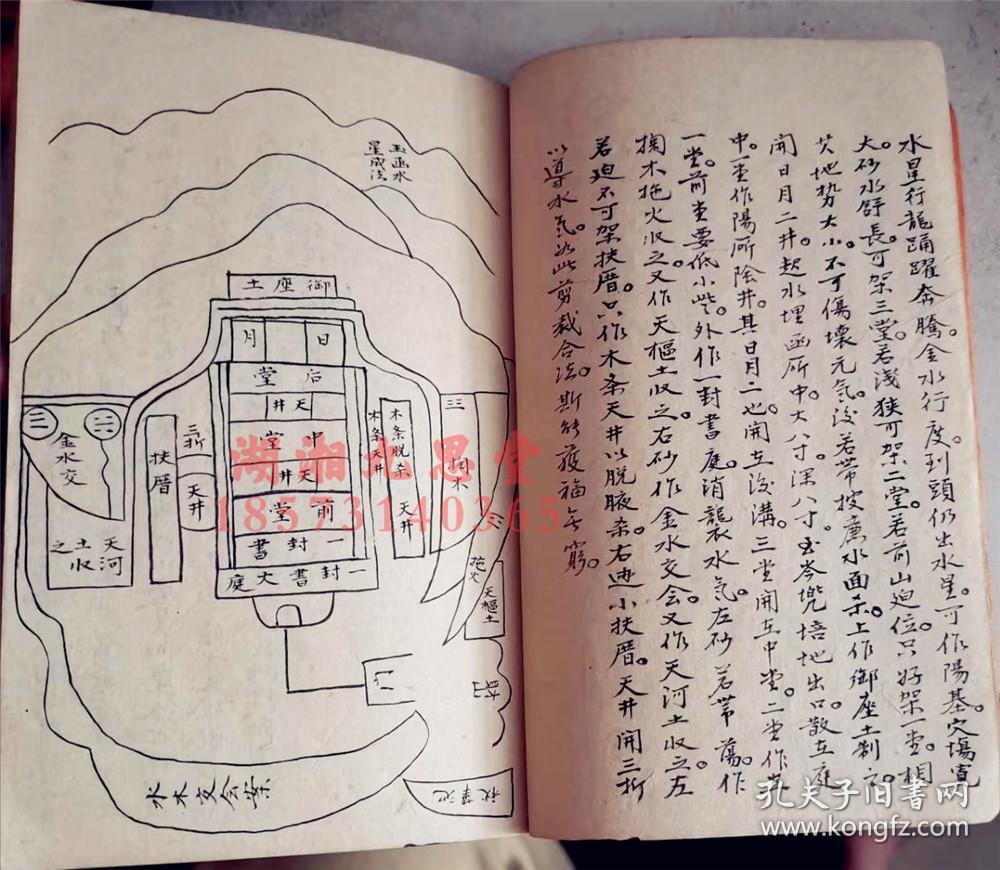 水星行龍踊躍奔騰。金水行度。到頭仍出水星。可作陽基。穴場寬
大。砂水舒長。可架三堂。若淺狹可架二堂。若前山迫位。只好架一堂。相
其地势大小。不可傷壞元氣。後若帶披廉水面杀。上作御座土制之。
開日月二井。起水埋函所中。大八寸。深八寸。培地出口。散在庭
中。一堂作陽所陰井。其日月二也。開在後溝。三堂開在中堂。二堂作
一堂。前堂要低小些。外作一封書庭。消襲衣水气。左砂若帶蕩。作
掬木拖火收之。又作天樞土收之。右砂作金水交会。又作天河土收之。左
若迫不可架扶厝。只作木条天井以脱腋杀。右边小扶厝。天井開三折
以導水气。如此剪裁合法。斯能獲福無窮。
玉函水
星成法
御座土
日
月
后堂
天井
中堂
天井
前堂
一封書
一封書大庭
木条天井
木条脱杀
天井
三折
天井
扶厝
金水交
天河
土收
之
三
拖火
天樞土
水木交会案
秋華池
湖湘九思堂
18573140365
孔夫子旧書网
www.kongfz.com